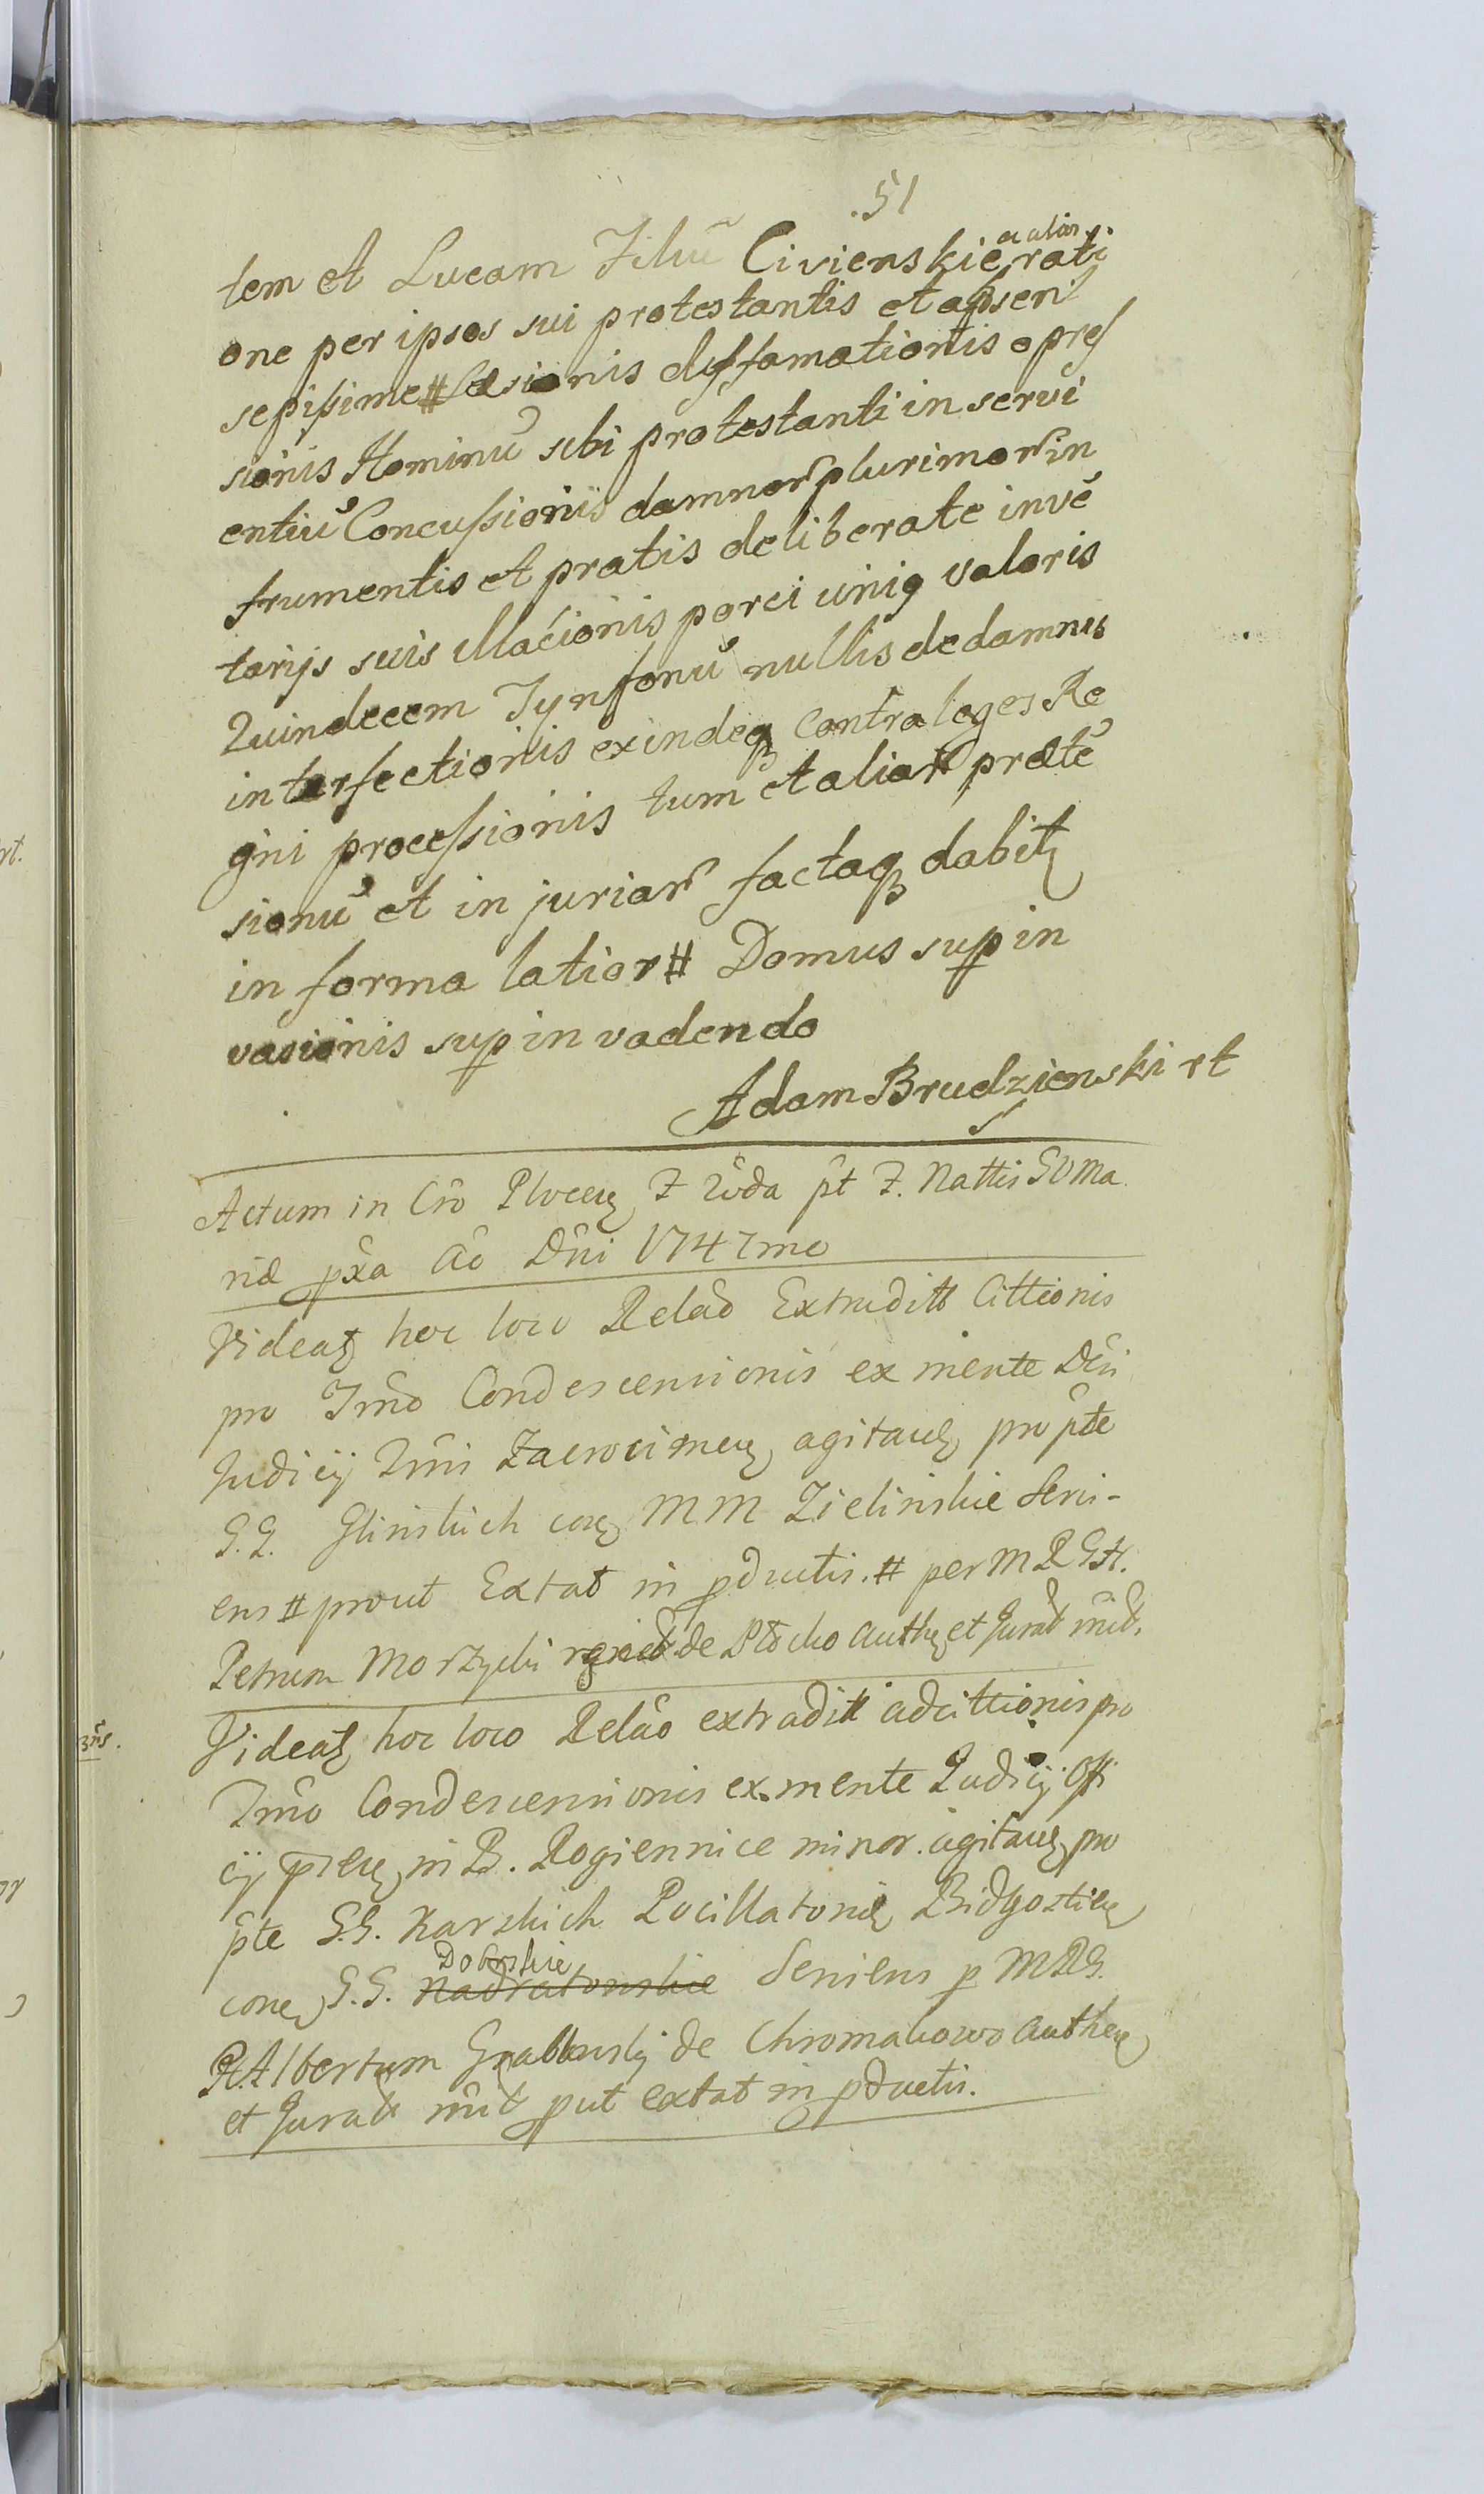 .51
tem et Lucam Filiū Civienskie, et alias rati
one per ipsos sui protestantis et apseri
sepißime # Læsionis diffamationis opreſ
sionis Hominū sibi protestanti in servi
entiū Concußionis damnor plurimor in
frumentis et pratis deliberate invē
tarijs suis illaċionis porci uniq valoris
Quindecem Tynfonū nullis de damnis
interfectionis exindeq Contra leges Re
gni proceßionis tum et aliar prætē
sionū et in juriar factaq dabitz
in forma latior # Domus sup in
vasionis sup in vadendo
Adam Brudzienski rt
Actum in Cro Plocen F 2da pt F. Nattis GVMa
riæ pxa Ao Dni 1747mo
Videatz hoc loco Relaō Extraditt Cittionis
pro Tmō Condescensionis ex mente Dēi
Judicij Tmi Zacrocimen agitaē pro pte
G.G. Glinskich con MM Zielinskie Servi-
ens # prout Extat in pductis. # per M R Gft.
Petrum Morzycki de Plocko Authen et Jurat mid.
3ns.
Videatz hoc loco Relaō extraditt adcittionis pro
Tmō Condescensionis ex mente Judicij Offi
cij Plen in B. Rogiennice minor. agitaē pro
pte G.G. Karskich Pocillatorie Bidgostien
con G.G. Nadratowskie Dobrskie Serviens p MRG.
R. Albertum Grabkuski de Chromakowo Authen
et Jurat mid put extat in pductis.